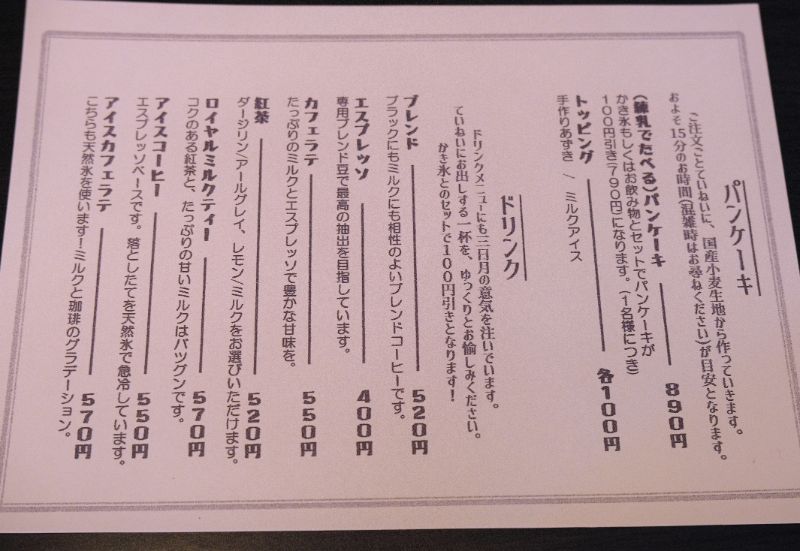 パンケーキ
ご注文ごとていねいに、国産小麦生地から作っていきます。
およそ15分のお時間(混雑時はお尋ねください)が目安となります。
(練乳でたべる)パンケーキ 890円
かき氷もしくはお飲み物とセットでパンケーキが
100円引き(790円)になります。(1名様につき)
トッピング 各100円
手作りあずき / ミルクアイス
ドリンク
ドリンクメニューにも三日月の意気を注いでいます。
ていねいにお出しする一杯を、ゆっくりとお愉しみください。
かき氷とのセットで100円引きとなります!
ブレンド 520円
ブラックにもミルクにも相性のよいブレンドコーヒーです。
エスプレッソ 400円
専用ブレンド豆で最高の抽出を目指しています。
カフェラテ 550円
たっぷりのミルクとエスプレッソで豊かな甘味を。
紅茶 520円
ダージリン/アールグレイ、レモン/ミルクをお選びいただけます。
ロイヤルミルクティー 570円
コクのある紅茶と、たっぷりの甘いミルクはバツグンです。
アイスコーヒー 550円
エスプレッソベースです。落としたてを天然氷で急冷しています。
アイスカフェラテ 570円
こちらも天然氷を使います!ミルクと珈琲のグラデーション。